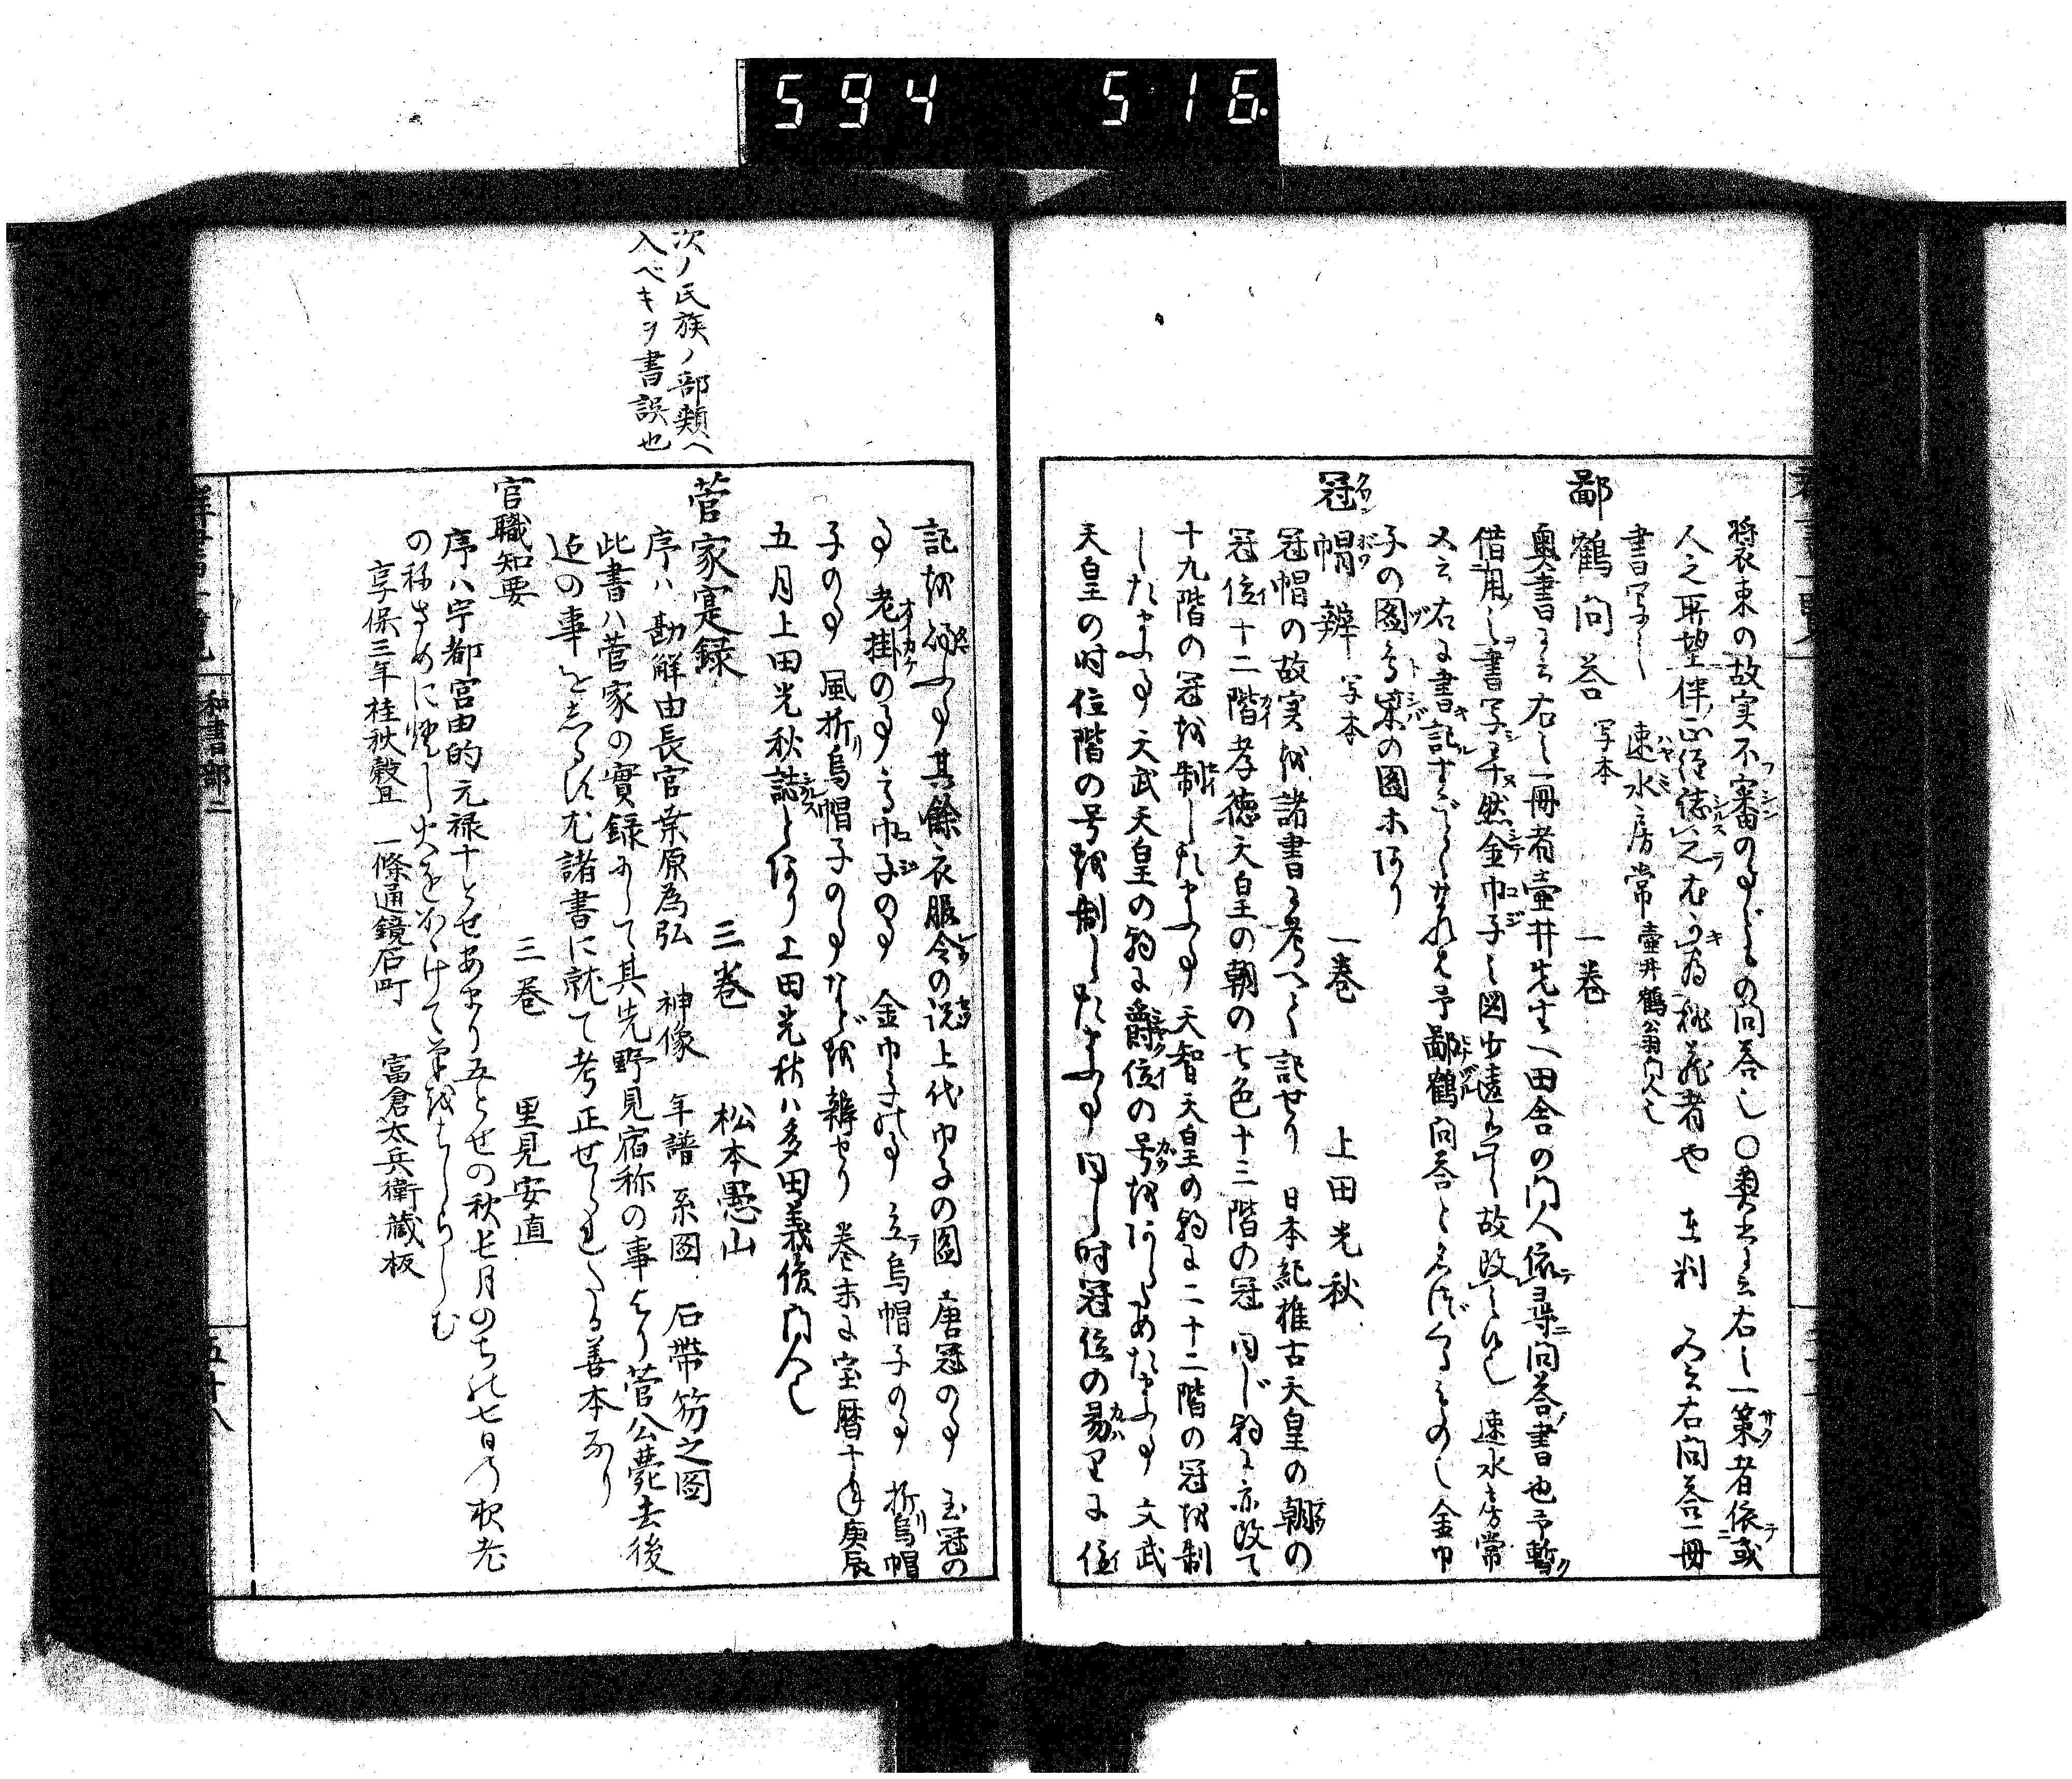 594 516.
装束の故実不審の事どもの問答也 ○奥書に云右之一策者依或
人之所望伴正往誌之尤可為秘蔵者也 在判 又云右問答一冊
書写了 速水房常 壺井鶴翁門人也
鄙鶴問答 写本 一巻
奥書に云右之一冊者壺井先生へ田舎の門人依尋問答書也予暫
借用之書写了然金巾子之図少違有之故改之也 速水房常
又云右に書記すごとくなれは予鄙鶴問答と名づくるもの也 金巾
子の図鳥柴の図木あり
冠帽辨 写本 一巻 上田光秋
冠帽の故実を諸書に考へて記せり 日本紀推古天皇の朝の
冠位十二階孝徳天皇の朝の七色十三階の冠 同じ朝に亦改て
十九階の冠を制したまふ事 天智天皇の朝に二十二階の冠を制
したまふ事 天武天皇の朝に爵位の号をあらためたまふ事 文武
天皇の時位階の号を制したまふ事 同し時冠位の易りに位
記を給ふ事 其餘衣服令の説 上代巾子の図 唐冠の事 玉冠の
事 老掛の事 巾子の事 金巾子の事 立烏帽子の事 折烏帽
子の事 風折烏帽子の事などを辨せり 巻末に宝暦十年庚辰
五月上田光秋誌とあり 上田光秋ハ多田義俊門人也
次ノ氏族ノ部類ヘ
入ベキヲ書誤也
菅家寔録 三巻 松本愚山
序ハ勘解由長官菅原為弘 神像 年譜 系図 石帯笏之図
此書ハ菅家の實録にして其先野見宿祢の事より菅公薨去後
迄の事をしるし尤諸書に就て考正せられたる善本なり
官職知要 三巻 里見安直
序ハ宇都宮由的元禄十とせあまり五とせの秋七月のちの七日
の祢さめに燈し火をかゝけて筆をはしらしむ
享保三年桂秋穀旦 一條通鏡石町 富倉太兵衛蔵板
和書部二
五十八